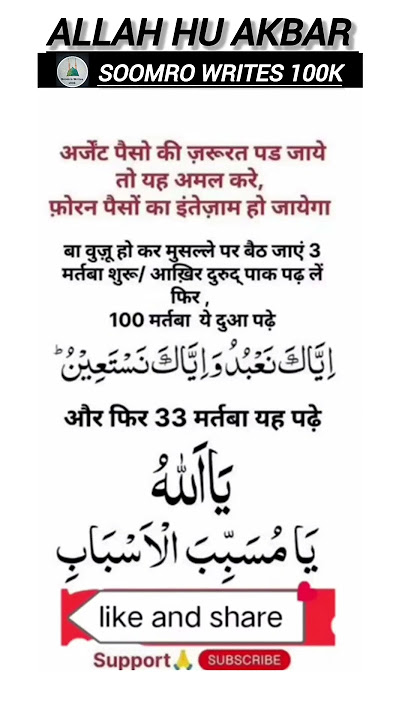 ALLAH HU AKBAR
SOOMRO WRITES 100K
अर्जेंट पैसो की ज़रूरत पड जाये
तो यह अमल करे,
फ़ोरन पैसों का इंतेज़ाम हो जायेगा
बा वुज़ू हो कर मुसल्ले पर बैठ जाएं 3
मर्तबा शुरू/ आख़िर दुरुद पाक पढ़ लें
फिर ,
100 मर्तबा ये दुआ पढ़े
اِيَّاكَ نَعْبُدُ وَاِيَّاكَ نَسْتَعِيْنُ ؕ
और फिर 33 मर्तबा यह पढ़े
يَا اَللّٰهُ
يَا مُسَبِّبَ الْاَسْبَابِ
like and share
Support🙏 SUBSCRIBE